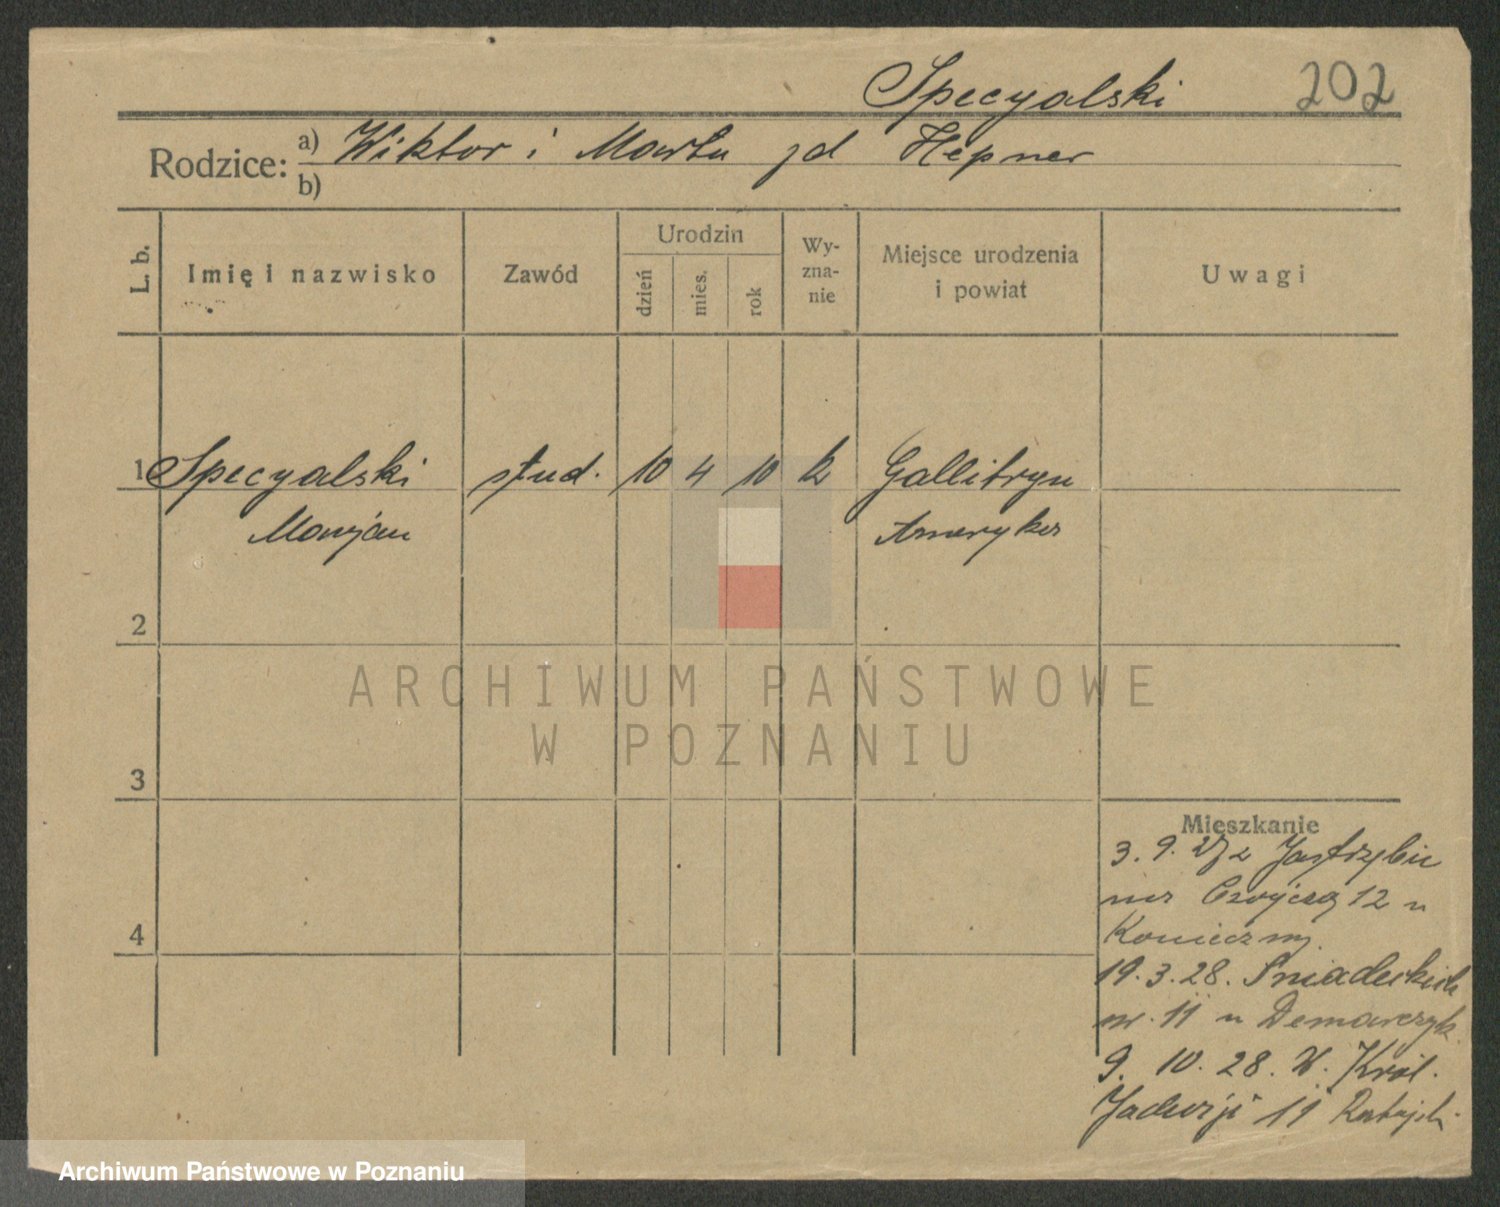 Specyalski 202
Rodzice: a) Wiktor i Marta zd Hepner
b)
L. b. Imię i nazwisko Zawód Urodzin dzień mies. rok Wyzna-nie Miejsce urodzenia i powiat Uwagi
1 Specyalski stud. 10 4 10 k Gallitzyn
Marjan Ameryka
2
ARCHIWUM PAŃSTWOWE
W POZNANIU
3
Mieszkanie
3. 9. 27 z
12 u
4
19. 3. 28. Śniadeckich
nr. 11 u Demarczyk
9. 10. 28. W. Król.
Jadwigi 11
Archiwum Państwowe w Poznaniu